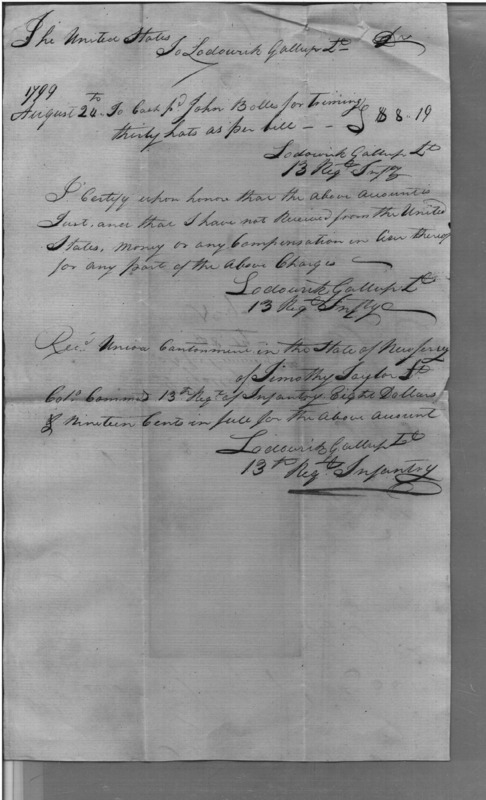 The United States
To Lodowick Gallup Lt Dr
1799
August 24th To Cash pd John Bolles for Triming
thirty hats as per bill - - - $ 8 - 19
Lodowick Gallup Lt
13 Regt Infty
I Certify upon honor that the above account is
Just, and that I have not Received from the United
States, money or any Compensation in lieu thereof
for any part of the above Charges
Lodowick Gallup Lt
13 Regt Infty
Recd Union Cantonment in the State of New Jersey
of Timothy Taylor Lt
Colo Commd 13th Regt of Infantry Eight Dollars
& Nineteen Cents in full for the above account
Lodowick Gallup Lt
13th Regt Infantry